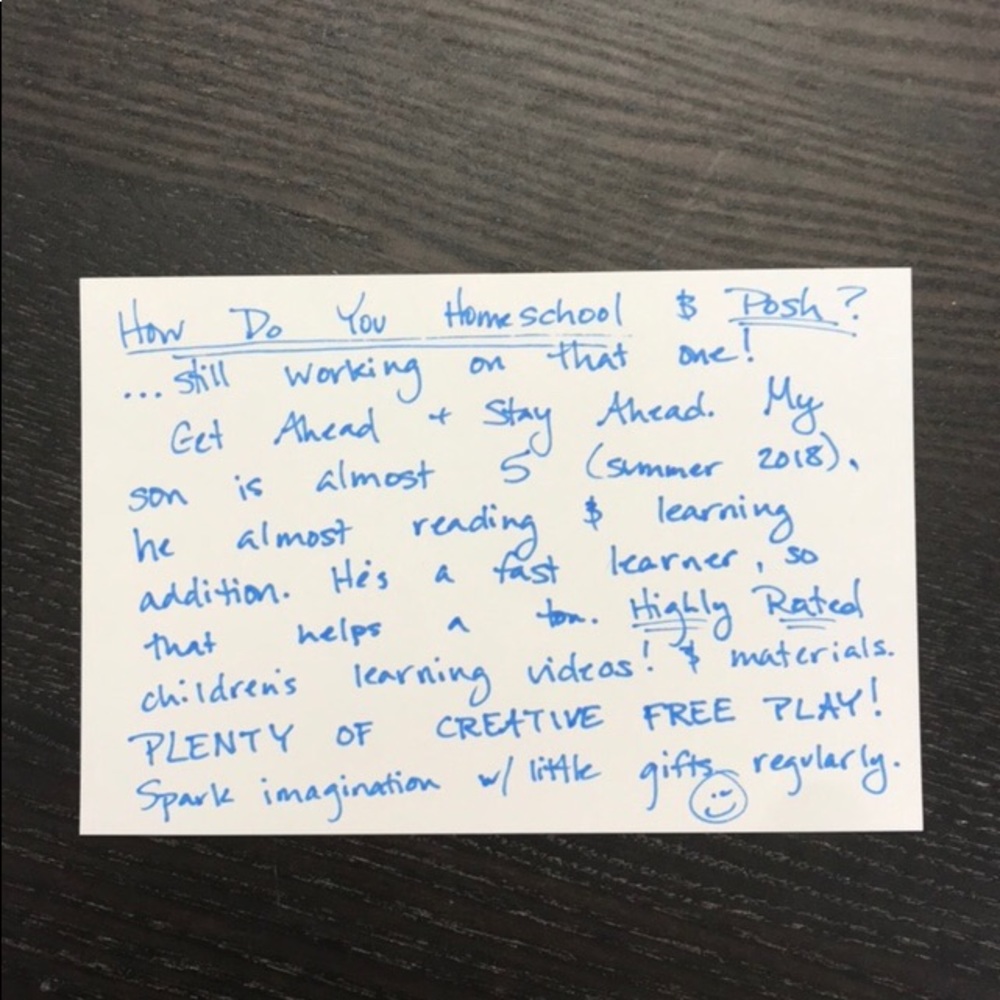 How Do You Homeschool & Posh?
...still working on that one!
Get Ahead + Stay Ahead. My
son is almost 5 (summer 2018),
he almost reading & learning
addition. He's a fast learner, so
that helps a ton. Highly Rated
children's learning videos! & materials.
PLENTY OF CREATIVE FREE PLAY!
Spark imagination w/ little gifts regularly.